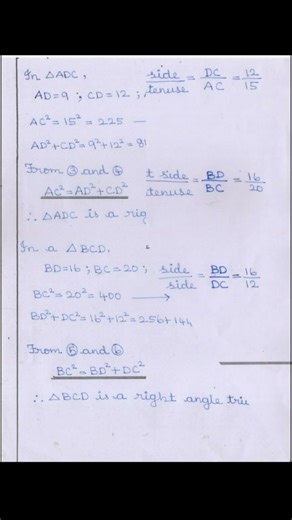 In △ADC,
side/tenuse = DC/AC = 12/15
AD=9 ; CD=12 ;
AC²=15²=225 —
AD²+CD²=9²+12²=81
From ③ and ④
t side/tenuse = BD/BC = 16/20
AC²=AD²+CD²
∴ △ADC is a rig
In a △BCD.
BD=16 ; BC=20 ;
side/side = BD/DC = 16/12
BC²=20²=400 ⟶
BD²+DC²=16²+12²=256+144
From ⑤ and ⑥
BC²=BD²+DC²
∴ △BCD is a right angle tria